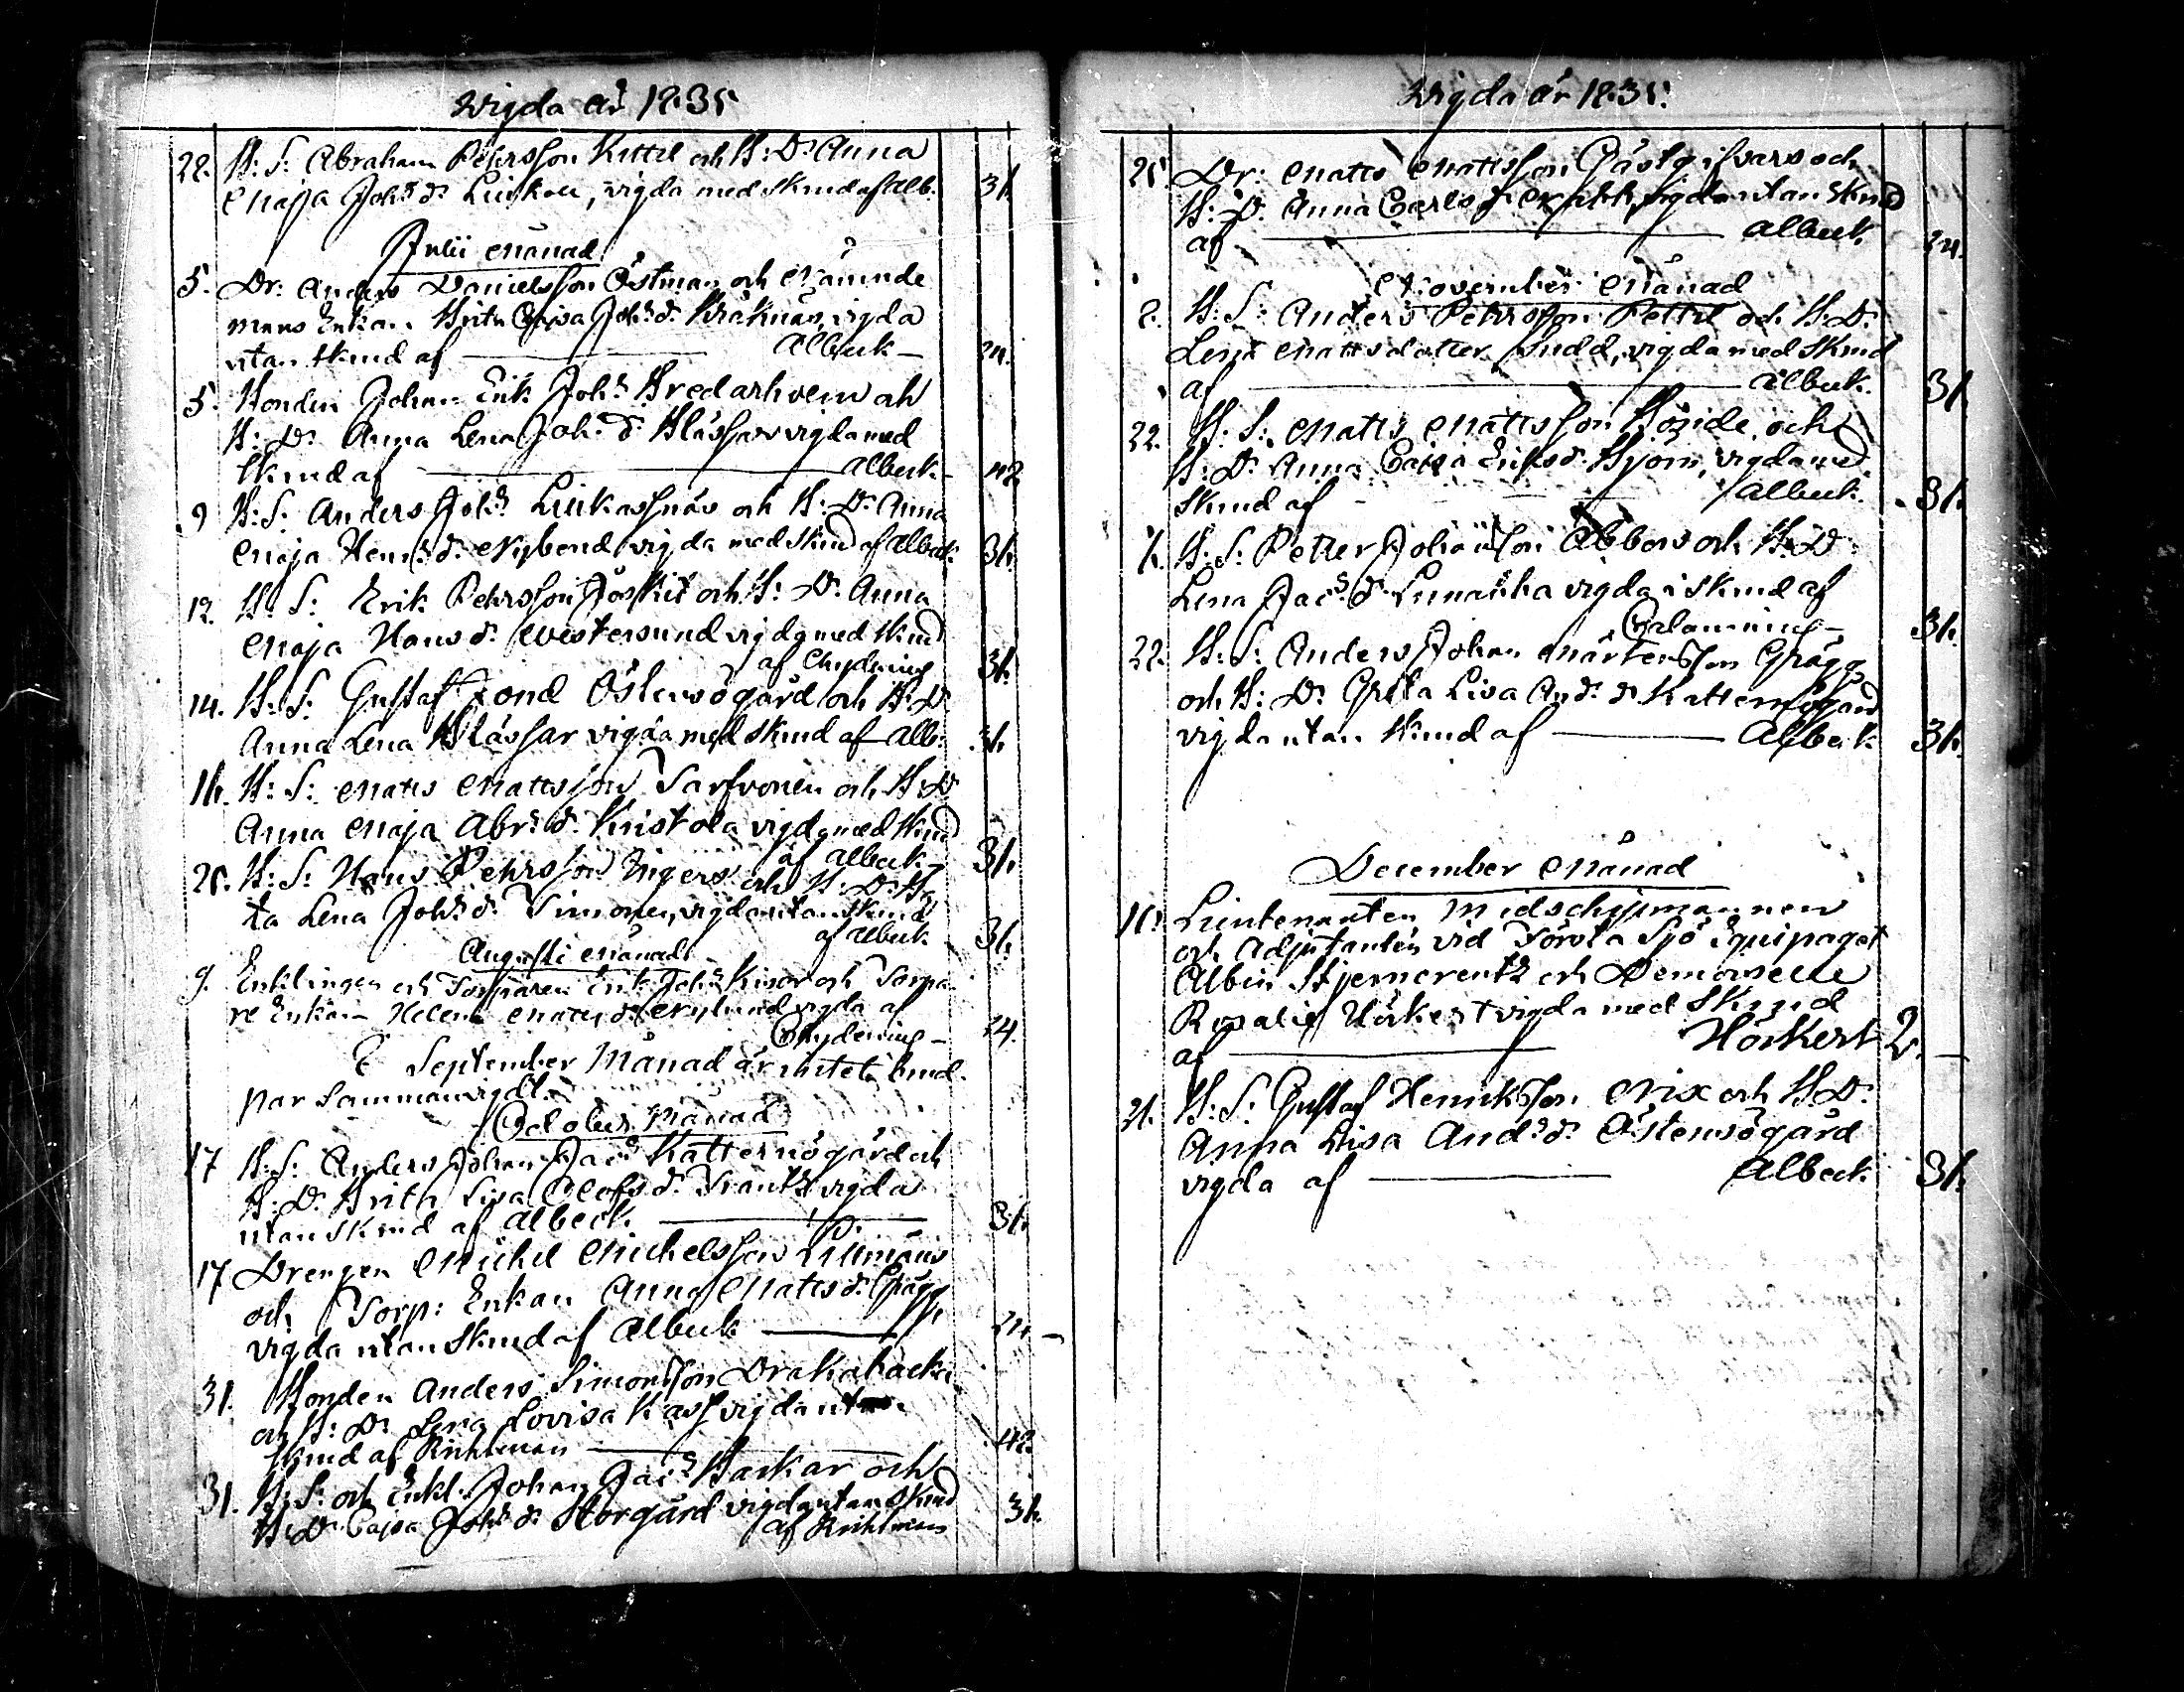 Wigda år 1835
22. B: S: Abraham Pehrsson Kittil och B: Dr Anna
Maja Johs dr vigda med skrud af Alb: 36.
Julii Månad
5. Dr: Anders Danielsson Östman och Nämnde
mans Enkan Brita Cajsa Johs dr Kråknäs, vigda
utan skrud af Albeck 24.
5. Bonden Johan Erik Johs Bredarholm och
B: Dr Anna Lena Joh: dr Klåssar vigda med
skrud af Albeck 42
9 B: S: Anders Johs Luckassnäs och B: Dr Anna
Maja Henr: dr Nybond vigda med skrud af Albeck 36.
12. B: S: Erik Pehrsson och B: Dr Anna
Maja Hans dr Westersund vigda med skrud
af Chydenius 36.
14. B: S: Gustaf Fond Östensögård och B: D:
Anna Lena Klåssar vigda med skrud af Alb: 36
16. B: S: Matts Mattsson Sarfvonen och B: D:
Anna Maja Abr: dr Kristola vigda med skrud
af Albeck 36.
25. B: S: Hans Pehrsson Ingers och B: Dr
ta Lena Johs dr Simonen, vigda utan skrud
af Albeck 36.
Augusti Månad
9. Enklingen och Torparen Erik Johs och Torpa-
re Enkan Helena Matts dr Nylund vigda af
Chydenius 24.
I September Månad är intet brud-
par sammanvigdt.
October Månad
17 B: S: Anders Johan Jacs Katternögård och
B: Dr Brita Lisa Olofs dr Frantz vigda
utan skrud af Albeck 36.
17 Drengen Michel Michelsson Lillmåns
och Torp: Enkan Anna Matts dr Grägg,
vigda utan skrud af Albeck 24.
31. Bonden Anders Simonsson Drakabacka
och B: Dr Lena Lovisa Kass vigda utan
skrud af 42.
31. B: S: och Enkl. Johan Jacs Backar och
B: D: Cajsa Johs dr Storgård vigda utan skrud
af 36.
Wigda år 1835.
25. Dr: Matts Mattsson Gästgifvars och
B: D: Anna Carls dr vigda utan skrud
af Albeck 24.
November Månad
8. B: S: Anders Pehrsson Pettil och B: D:
Lena Mattsdotter Sudd, vigda med skrud
af Albeck 36.
22. B: S: Matts Mattsson Bonde och
B: Dr Anna Cajsa Eriks dr Björn, vigda med
skrud af Albeck 36.
B: S: Petter Johansson Abbors och B: D:
Lena Jacs dr vigda i skrud af
36.
22. B: S: Anders Johan Mårtensson Grägg
och B: Dr Greta Lisa Ands dr Katternögård
vigda utan skrud af Albeck 36.
December Månad
16. Lieutenanten Midschipmannen
och Adjutanten vid Första Sjö Equipaget
Albin Stjerncreutz och Demoiselle
Rosalie Hörkert vigda med skrud
af Hörkert 2.
26. B: S: Gustaf Henriksson Nix och B: D:
Anna Lisa Ands dr Östensögård
vigda af Albeck 36.